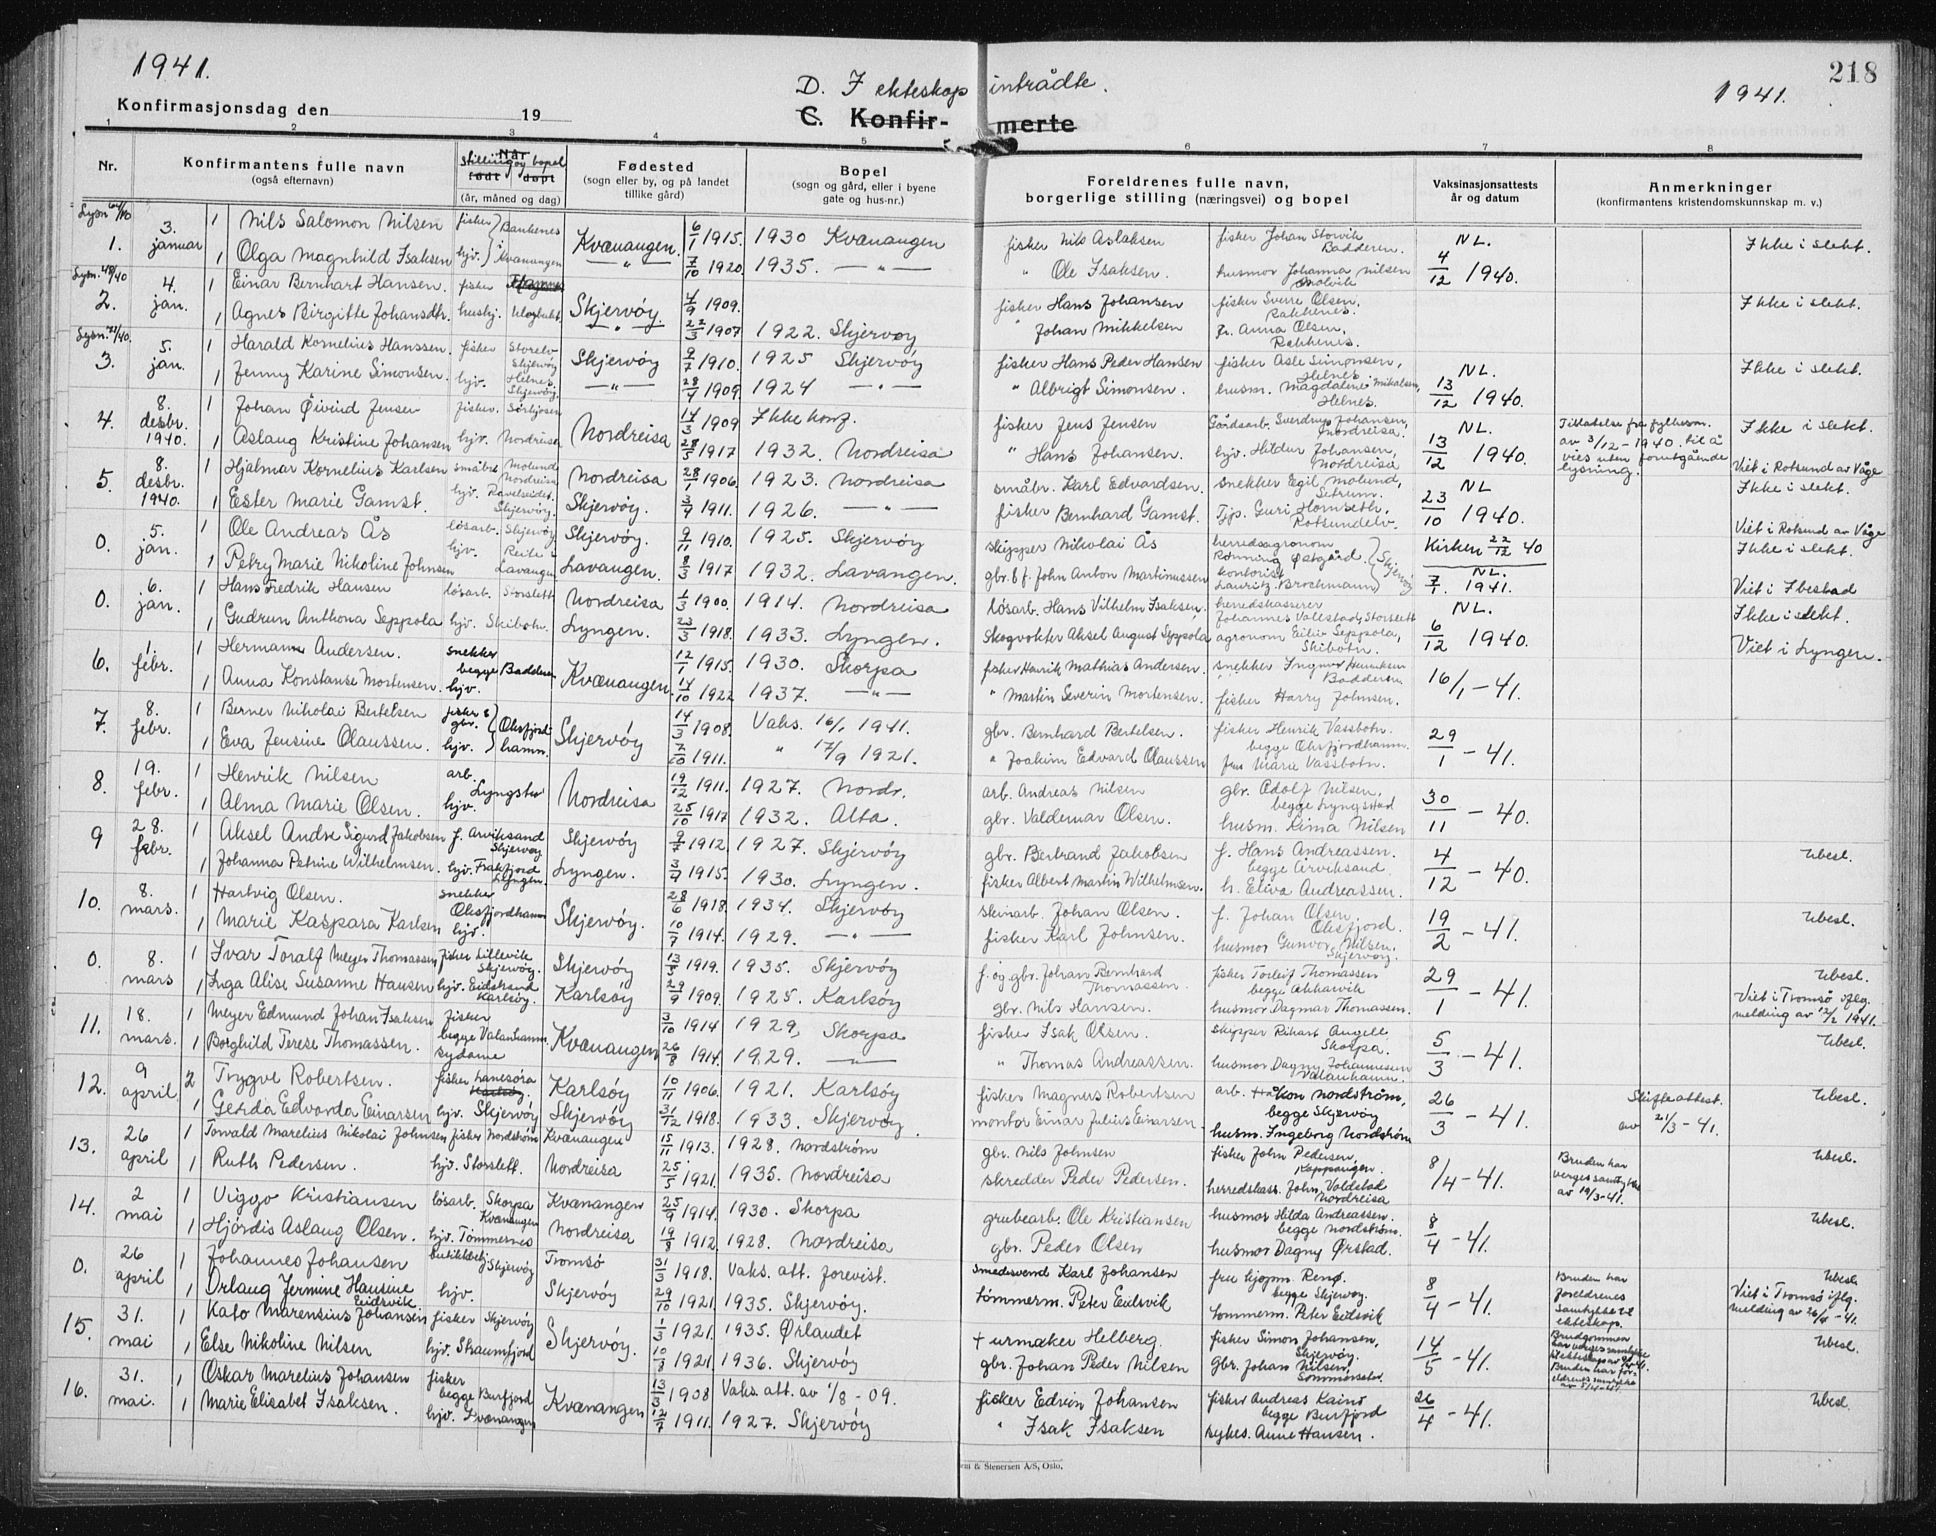 1941.
218
D. I ekteskap intrådte.
1941.
Konfirmasjonsdag den 19
C. Konfirmerte
1 2 3 4 5 6 7 8
Nr.
Konfirmantens fulle navn
(også efternavn)
Når
Stilling og bopel
født døpt
(år, måned og dag)
Fødested
(sogn eller by, og på landet
tillike gård)
Bopel
(sogn og gård, eller i byene
gate og hus-nr.)
Foreldrenes fulle navn,
borgerlige stilling (næringsvei) og bopel
Vaksinasjonsattests
år og datum
Anmerkninger
(konfirmantens kristendomskunnskap m. v.)
1. 3. januar 1 Nils Salomon Nilsen fisker Kvænangen 6/1 1915. 1930 Kvænangen fisker Nils Aslaksen fisker Johan Storvik Badderen NL. Ikke i slekt.
1 Olga Magnhild Isaksen hjv. i Kvænangen — " — 7/10 1920. 1935. — " — " Ole Isaksen. husmor Johanna Nilsen 4/12 1940.
2. 4. jan. 1 Einar Bernhart Hansen. fisker Skjervøy. 4/9 1909. fisker Hans Johansen fisker Sverre Olsen. Ikke i slekt.
1 Agnes Birgitte Johansdtr. — " — 22/3 1907 1922. Skjervøy " Johan Mikkelsen fr. Anna Olsen,
3. 5. jan. 1 Harald Kornelius Hanssen. fisker Storelv Skjervøy Skjervøy 9/7 1910. 1925 Skjervøy fisker Hans Peder Hansen fisker Asle Simonsen, Helnes NL. Ikke i slekt.
1 Jenny Karine Simonsen. hjv. Helnes. Skjervøy. — " — 28/4 1909. 1924 — " — " Albrigt Simonsen. husm. Magdalene Mikalsen, Helnes. 13/12 1940.
4. 8. desbr. 1940. 1 Johan Øivind Jensen fisker. Sørkjosen Nordreisa 14/3 1909 Ikke konf. fisker Jens Jensen Gårdsarb. Sverdrup Johansen, Nordreisa. NL. Tillatelse fra fylkesm. av 3/12 - 1940 til å vies uten forutgående lysning. Ikke i slekt.
1 Aslaug Kristine Johansen hjv. Nordreisa 28/5 1917 1932. Nordreisa " Hans Johansen. hjv. Hildur Johansen, Nordreisa 13/12 1940. Viet i Rotsund av Våge
5. 8. desbr. 1940. 1 Hjalmar Kornelius Karlsen småbr. Molund Nordreisa Nordreisa 28/1 1906. 1923. Nordreisa småbr. Karl Edvardsen. snekker Egil Molund, NL Ikke i slekt.
1 Ester Marie Gamst. hjv. Ravelseidet. Skjervøy. Skjervøy. 3/4 1911. 1926. — " — fisker Bernhard Gamst. Tjp. Guri Hornseth, Rotsundelv. 23/10 1940. Viet i Rotsund av Våge
0. 5. jan. 1 Ole Andreas Ås løsarb. Skjervøy Skjervøy. 9/11 1910. 1925. Skjervøy skipper Nikolai Ås herredsagronom Rønning Østgård Skjervøy Kirken 22/12 40 Ikke i slekt.
1 Petry Marie Nikoline Johnsen hjv. Lavangen Lavangen. 8/3 1917 1932. Lavangen. gbr. & f. John Anton Martinussen kontorist Lauritz Brochmann NL. 7/7. 1941. Viet i Ibestad
0. 6. jan. 1 Hans Fredrik Hansen løsarb. Storslett Nordreisa 1/3 1900. 1914. Nordreisa løsarb. Hans Vilhelm Isaksen. herredskasserer Johannes Vallestad, Storslett NL. Ikke i slekt.
1 Gudrun Anthona Seppola hjv. Skibotn. Lyngen. 23/3 1918. 1933. Lyngen. Skogvokter Aksel August Seppola agronom Eiliv Seppola, Skibotn. 6/12 1940. Viet i Lyngen.
6. 1. febr. 1 Hermann Andersen. snekker begge Badderen Kvænangen. 12/1 1915. 1930. Skorpa fisker Henrik Mathias Andersen. snekker Ingvar Henriksen Badderen 16/1 - 41.
1 Anna Konstanse Mortensen. hjv. 14/10 1922 1937. — " — " Martin Severin Mortensen. fisker Harry Johnsen.
7. 8. febr. 1 Berner Nikolai Bertelsen fisker & gbr. Oksfjordhamn. Skjervøy 14/3 1908. Vaks. 16/1 1941. gbr. Bernhard Bertelsen. fisker Henrik Vassbotn. begge Oksfjordhamn. 29/1 - 41.
1 Eva Jensine Olaussen. hjv. 7/10 1911. " 17/9 1921. " Joakim Edvard Olaussen fru Marie Vassbotn.
8. 19. febr. 1 Henrik Nilsen arb. Nordreisa 19/12 1911. 1927. Nordr. arb. Andreas Nilsen gbr. Adolf Nilsen. begge Lyngstad 30/11 - 40.
1 Alma Marie Olsen. hjv. 25/10 1917 1932. Alta. gbr. Valdemar Olsen. husm. Rima Nilsen
9 28. febr. 1 Aksel Andre Sigurd Jakobsen f. Arviksand Skjervøy Skjervøy 9/7 1912. 1927. Skjervøy gbr. Bertrand Jakobsen f. Hans Andreassen. begge Arviksand. 4/12 - 40. Ubesl.
1 Johanna Petrine Wilhelmsen. hjv. Lyngen. Lyngen. 3/7 1915. 1930. Lyngen. fisker Albert Martin Wilhelmsen. h. Eliva Andreassen.
10. 8. mars. 1 Hartvig Olsen. snekker Oksfjordhamn Skjervøy. 28/6 1918. 1934. Skjervøy Johan Olsen. f. Johan Olsen. Oksfjord. 19/2 - 41. Ubesl.
1 Marie Kaspara Karlsen hjv. 10/7 1914. 1929. — " — fisker Karl Johnsen. husmor Gunvor Nilsen. Skjervøy.
0. 8. mars 1 Ivar Toralf Meyer Thomassen fisker Lillevik Skjervøy. Skjervøy 13/3 1919. 1935. Skjervøy f. og gbr. Johan Bernhard Thomassen. fisker Torleif Thomassen begge Akkarvik 29/1 - 41. Ubesl.
1 Inga Alise Susanne Hansen hjv. Eidstrand Karlsøy. Karlsøy 29/9 1909. 1925. Karlsøy gbr. Nils Hansen. husmor Dagmar Thomassen. Viet i Tromsø iflg. melding av 12/2 1941.
11. 18. mars. 1 Meyer Edmund Johan Isaksen fisker begge Valanhamn. Kvænangen 3/10 1914 1929, Skorpa fisker Isak Olsen. skipper Rikart Angell Skorpa. 5/3 - 41. Ubesl.
1 Borghild Terese Thomassen. sydame 26/8 1914. 1929. — " — " Thomas Andreassen. husmor Dagny Johannesen Valanhamn.
12. 9 april 2 Trygve Robertsen. fisker Lanesøra Karlsøy. Karlsøy 10/11 1906. 1921. Karlsøy fisker Magnus Robertsen arb. Håkon Nordstrøm, begge Skjervøy 26/3 - 41. Skifteattest av 21/3 - 41. Ubesl.
Gerda Edvarda Einarsen hjv. Skjervøy Skjervøy 31/12 1918. 1933. Skjervøy. montør Einar Julius Einarsen. husm. Ingeborg Nordstrøm
13. 26 april 1 Torvald Marelius Nikolai Johnsen fisker Nordstrøm Kvænangen 15/11 1913. 1928. Nordstrøm gbr. Nils Johnsen fisker John Pedersen, 8/4 - 41. Bruden har vergesamtykke av 19/3-41. Ubesl.
1 Ruth Pedersen. hjv. Storslett. Nordreisa 25/5 1921. 1935. Nordreisa skredder Peder Pedersen. herredskass. John. Valdstad Nordreisa
14. 2 mai 1 Viggo Kristiansen løsarb. Skorpa Kvænangen Kvænangen 25/9 1914. 1930. Skorpa grubearb. Ole Kristiansen husmor Hilda Andreassen. begge Nordstrøm. 8/4 - 41. Ubesl.
1 Hjördis Aslaug Olsen. hjv. Tømmernes Nordreisa 19/8 1912. 1928. Nordreisa gbr. Peder Olsen husmor Dagny Ørstad.
0. 26 april 1 Johannes Johansen Skjervøy Tromsø 31/3 1918. Vaks. att. forevist. Smedsvend Karl Johansen fru kjøpm. Renø. begge Skjervøy. 8/4 - 41. Bruden har foreldrenes samtykke til ekteskap. Ubesl.
Orlaug Jermine Hansine Eidsvik hjv. Skjervøy 29/10 1921. 1935. Skjervøy. tømmerm. Peter Eidsvik tømmerm. Peter Eidsvik Viet i Tromsø iflg. melding av 26/4 - 41.
15. 31. mai 1 Kato Marensius Johansen fisker Skjervøy Skjervøy. 1/3 1921. 1935. Ørlandet + urmaker Helberg. fisker Simon Johansen, Skjervøy. 14/5 - 41. Brudgommen har verges samtykke Ubesl.
1 Else Nikoline Nilsen hjv. Straumfjord 10/3 1921 1936. Skjervøy gbr. Johan Peder Nilsen gbr. Johan Nilsen, Sommerset. Bruden har foreldrenes samtykke
16. 31. mai. 1 Oskar Marelius Johansen fisker begge Burfjord Kvænangen 13/3 1908 Vaks. att. av 1/8 - 09. fisker Edvin Johansen fisker Andreas Kainø begge Burfjord 26/4 - 41. Ubesl.
1 Marie Elisabet Isaksen. hjv. Kvænangen 12/7 1911. 1927. Skjervøy " Isak Isaksen sykes. Anne Hansen.
& Stenersen A/S, Oslo.